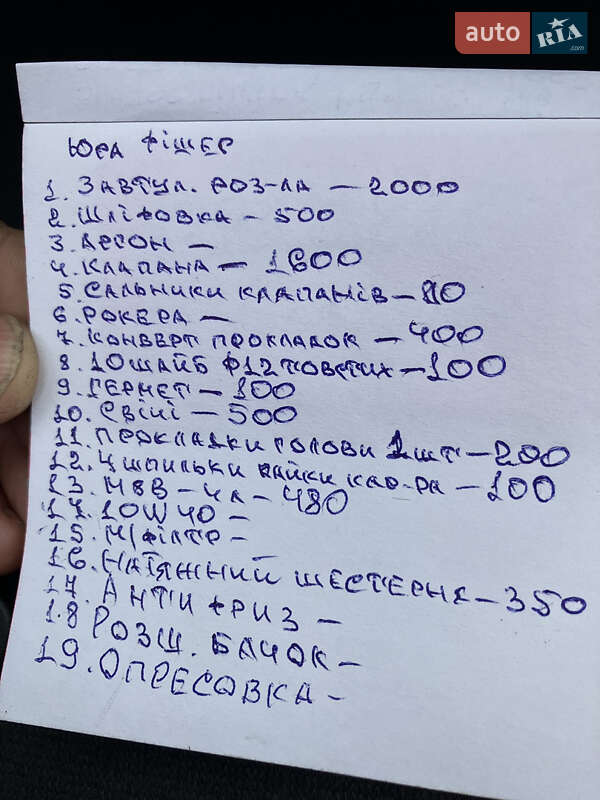 auto RIA .com
ЮРА ФІШЕР
1. ЗАВТУЛ. РОЗ-ЛА — 2000
2. ШЛІФОВКА - 500
3. АРГОН —
4. КЛАПАНА — 1600
5. САЛЬНИКИ КЛАПАНІВ — 80
6. РОКЕРА —
7. КОНВЕРТ ПРОКЛАДОК — 400
8. 10 ШАЙБ Ф12 ТОВСТИХ — 100
9. ГЕРМЕТ — 100
10. СВІЧІ — 500
11. ПРОКЛАДКИ ГОЛОВИ 1 ШТ — 200
12. 4 ШПИЛЬКИ ГАЙКИ КАР-РА — 100
13. М8В — 4Л — 480
14. 10W40 —
15. М/ФІЛТР —
16. НАТЯЖНИЙ ШЕСТЕРНЯ — 350
17. АНТИФРИЗ —
18 РОЗШ. БАЧОК —
19. ОПРЕСОВКА —